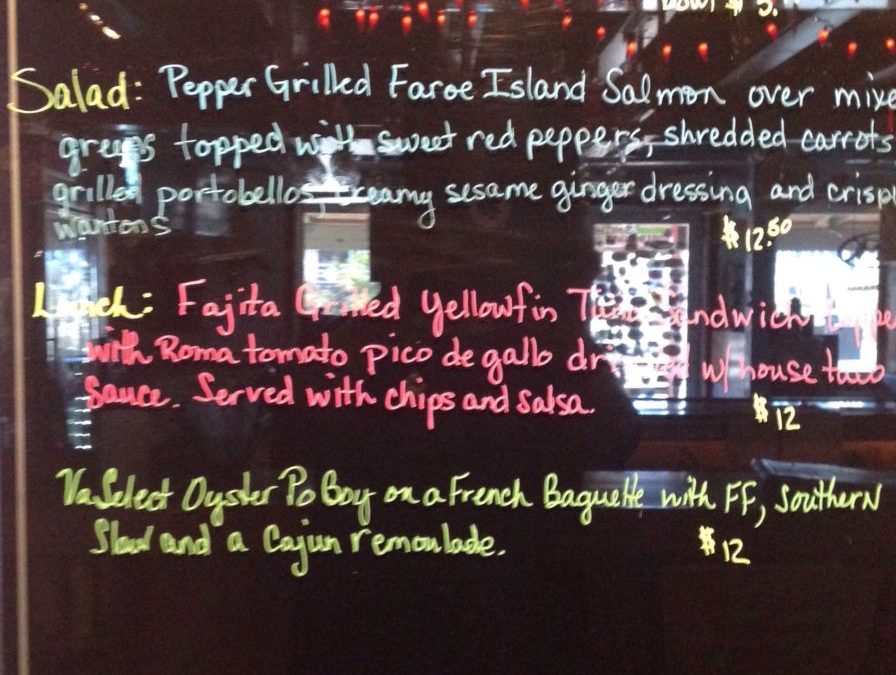 bowl $ 5.
Salad: Pepper Grilled Faroe Island Salmon over mixe
greens topped with sweet red peppers, shredded carrots
grilled portobellos, creamy sesame ginger dressing and crisp
wantons
$12.50
Lunch: Fajita Grilled Yellowfin Tuna Sandwich toppe
with Roma tomato pico de gallo drizzled w/ house taco
Sauce. Served with chips and salsa.
$12
Va Select Oyster Po Boy on a French Baguette with FF, Southern
Slaw and a Cajun remoulade.
$12